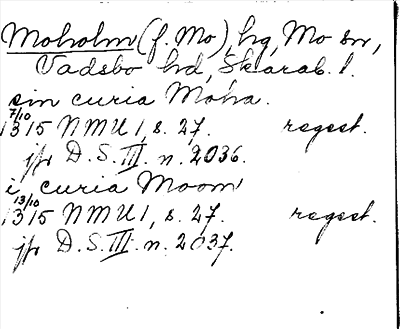 Moholm (f. Mo), hg, Mo sn,
Vadsbo hd, Skarab. l.
sin curia Moha.
7/10
1315 NMU 1, s. 27. regest.
jfr D.S. III. n. 2036.
i, curia Moom
13/10
1315 NMU 1, s. 27. regest.
jfr D.S. III. n. 2037.